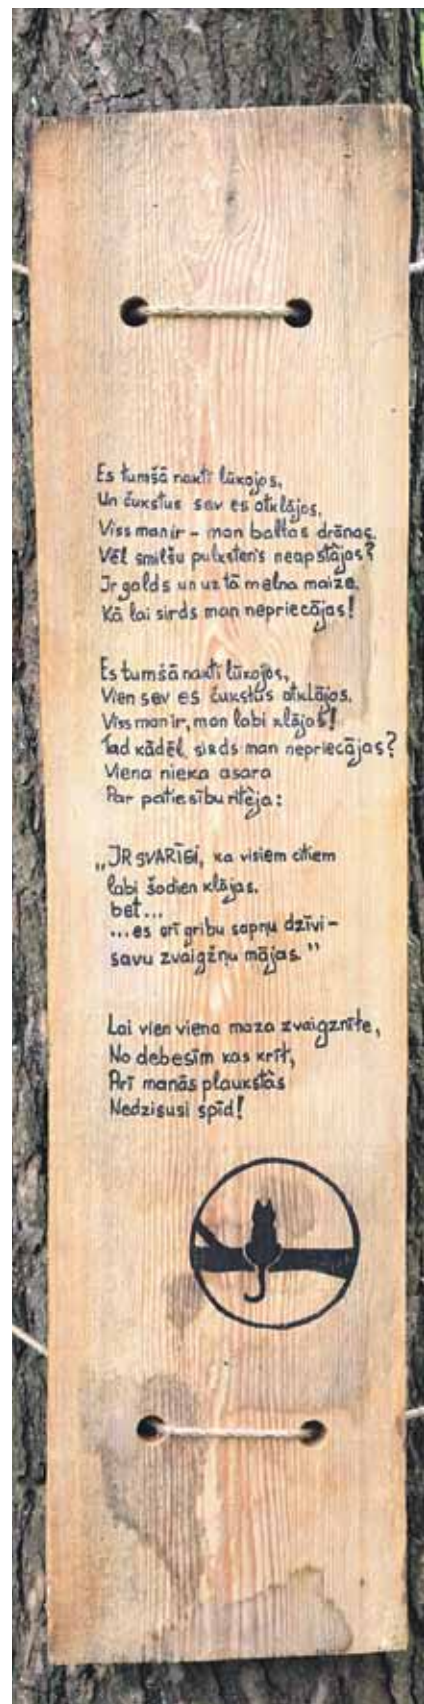 Es tumšā naktī lūkojos,
Un čukstus sev es atklājos.
Viss man ir - man baltas drānas.
Vēl smilšu pulkstenis neapstājas?
Ir galds un uz tā melna maize.
Kā lai sirds man nepriecājas!
Es tumšā naktī lūkojos,
Vien sev es čukstus atklājos.
Viss man ir, man labi klājas!
Tad kādēļ sirds man nepriecājas?
Viena nieka asara
Par patiesību ritēja:
„IR SVARĪGI, ka visiem citiem
labi šodien klājas.
bet...
...es arī gribu sapņu dzīvi-
savu zvaigžņu mājas."
Lai vien viena maza zvaigznīte,
No debesīm kas krīt,
Arī manās plaukstās
Nedzisusi spīd!